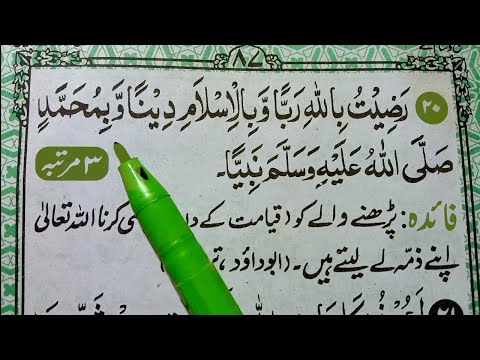 ۸۷
۲۰ رَضِیْتُ بِاللّٰهِ رَبًّا وَّبِالْاِسْلَامِ دِیْنًا وَّبِمُحَمَّدٍ
صَلَّی اللّٰهُ عَلَیْهِ وَسَلَّمَ نَبِیًّا۔ ۳ مرتبہ
فائدہ: پڑھنے والے کو (قیامت کے کرنا اللہ تعالیٰ
اپنے ذمّہ لے لیتے ہیں۔ (ابوداؤد،
۲۱